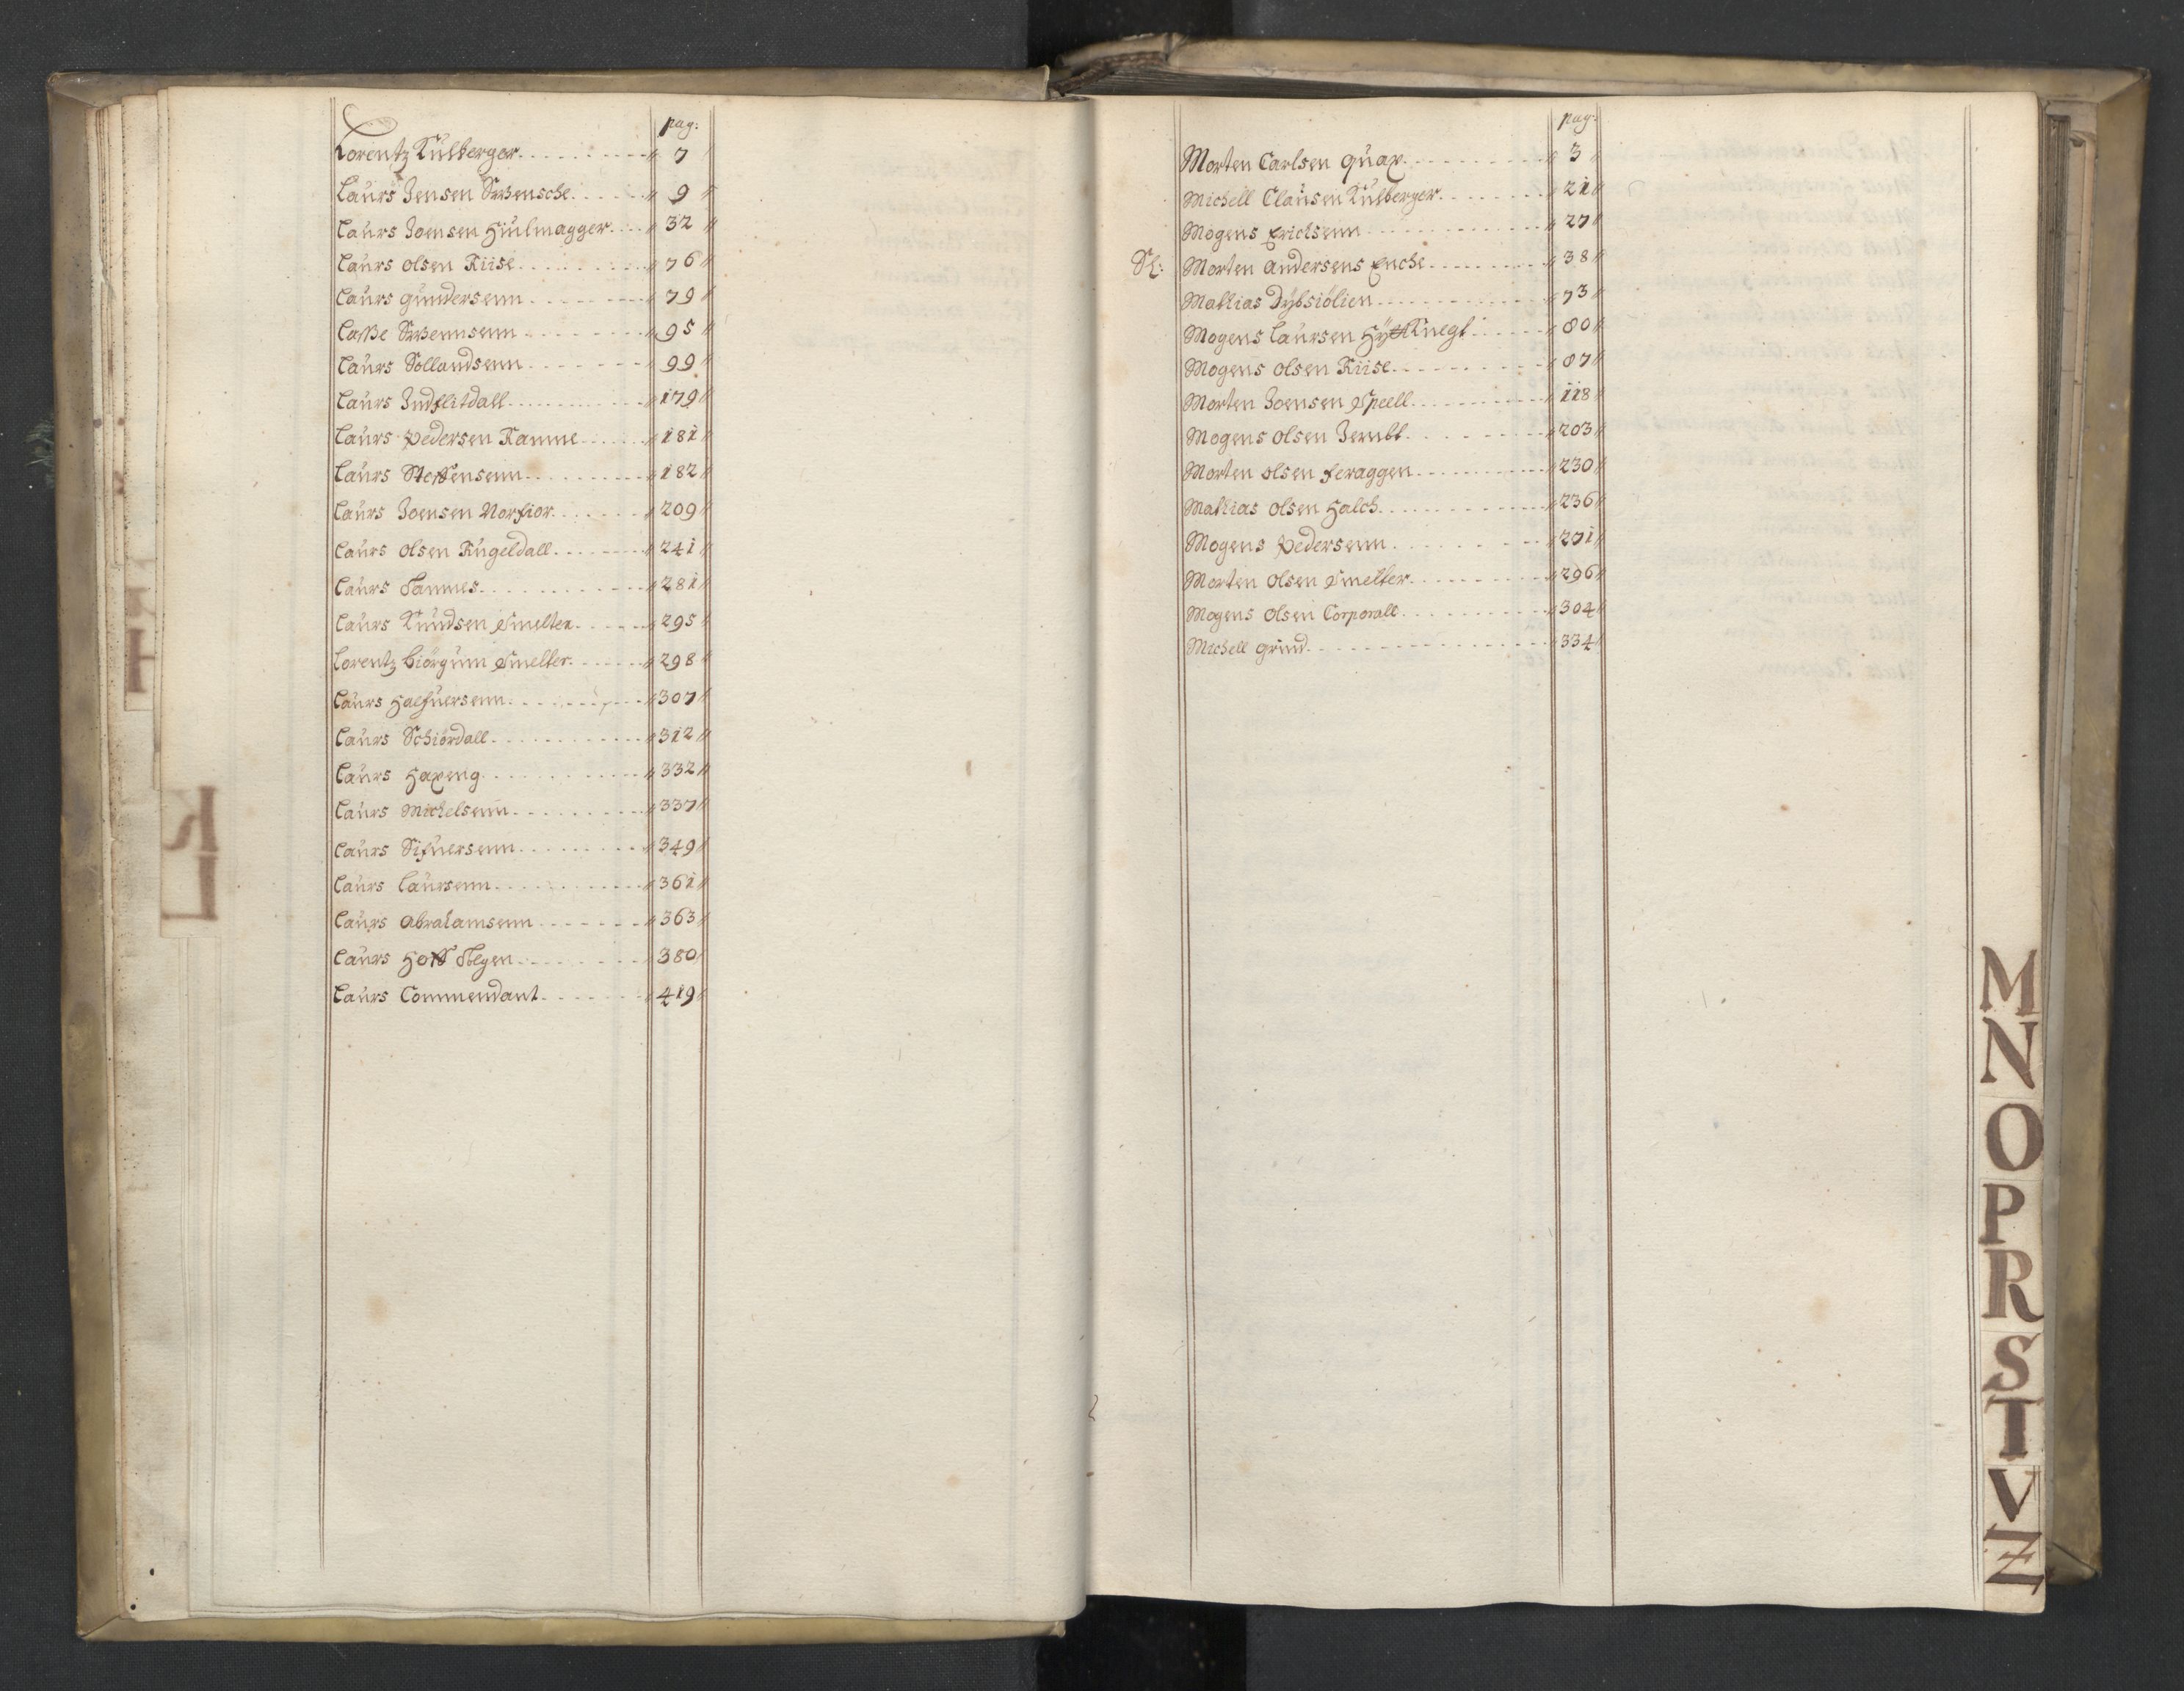 pag:
Lorentz Kulberger 7
Laurs Jensen Svensche 9
Laurs Joensen Hiulmagger 32
Laurs Olsen Riise 76
Laurs Gundersenn 79
Laße Svensenn 95
Laurs Sollandsenn 99
Laurs Indflitdall 179
Laurs Pedersen Ramme 181
Laurs Steffensenn 182
Laurs Joensen Norfior 209
Laurs Olsen Kugeldall 241
Laurs Tamnes 281
Laurs Knudsen Smelter 295
Lorentz Biörgum Smelter 298
Laurs Halfuersenn 307
Laurs Schiördall 312
Laurs Haxeng 332
Laurs Michelsenn 337
Laurs Sifuersenn 349
Laurs Laursenn 361
Laurs Abrahamsenn 363
Laurs Hoff 380
Laurs Commendant 419
K
L
pag:
Morten Carlsen Quax 3
Michell Clausen Kulberger 21
Mogens Erichsenn 27
Sl: Morten Andersens Enche 38
Mathias Dybsiölien 73
Mogens Laursen Hytknegt 80
Mogens Olsen Riise 87
Morten Joensen Speell 118
Mogens Olsen Jembt 203
Morten Olsen Feraggen 230
Mathias Olsen Halch 236
Mogens Pedersenn 271
Morten Olsen Smelter 296
Mogens Olsen Corporall 304
Michell Grind 334
M
N
O
P
R
S
T
V
Z